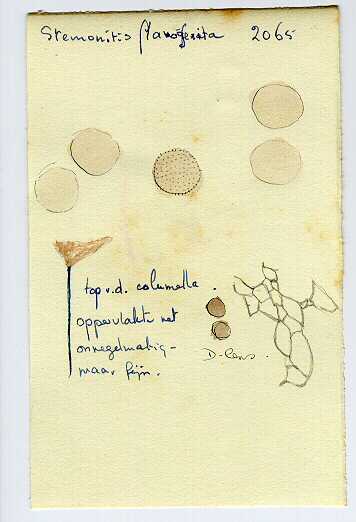 Stemonitis flavogenita 2065
top v.d. columella.
oppervlakte net
onregelmatig -
maar fijn.
D-lens.